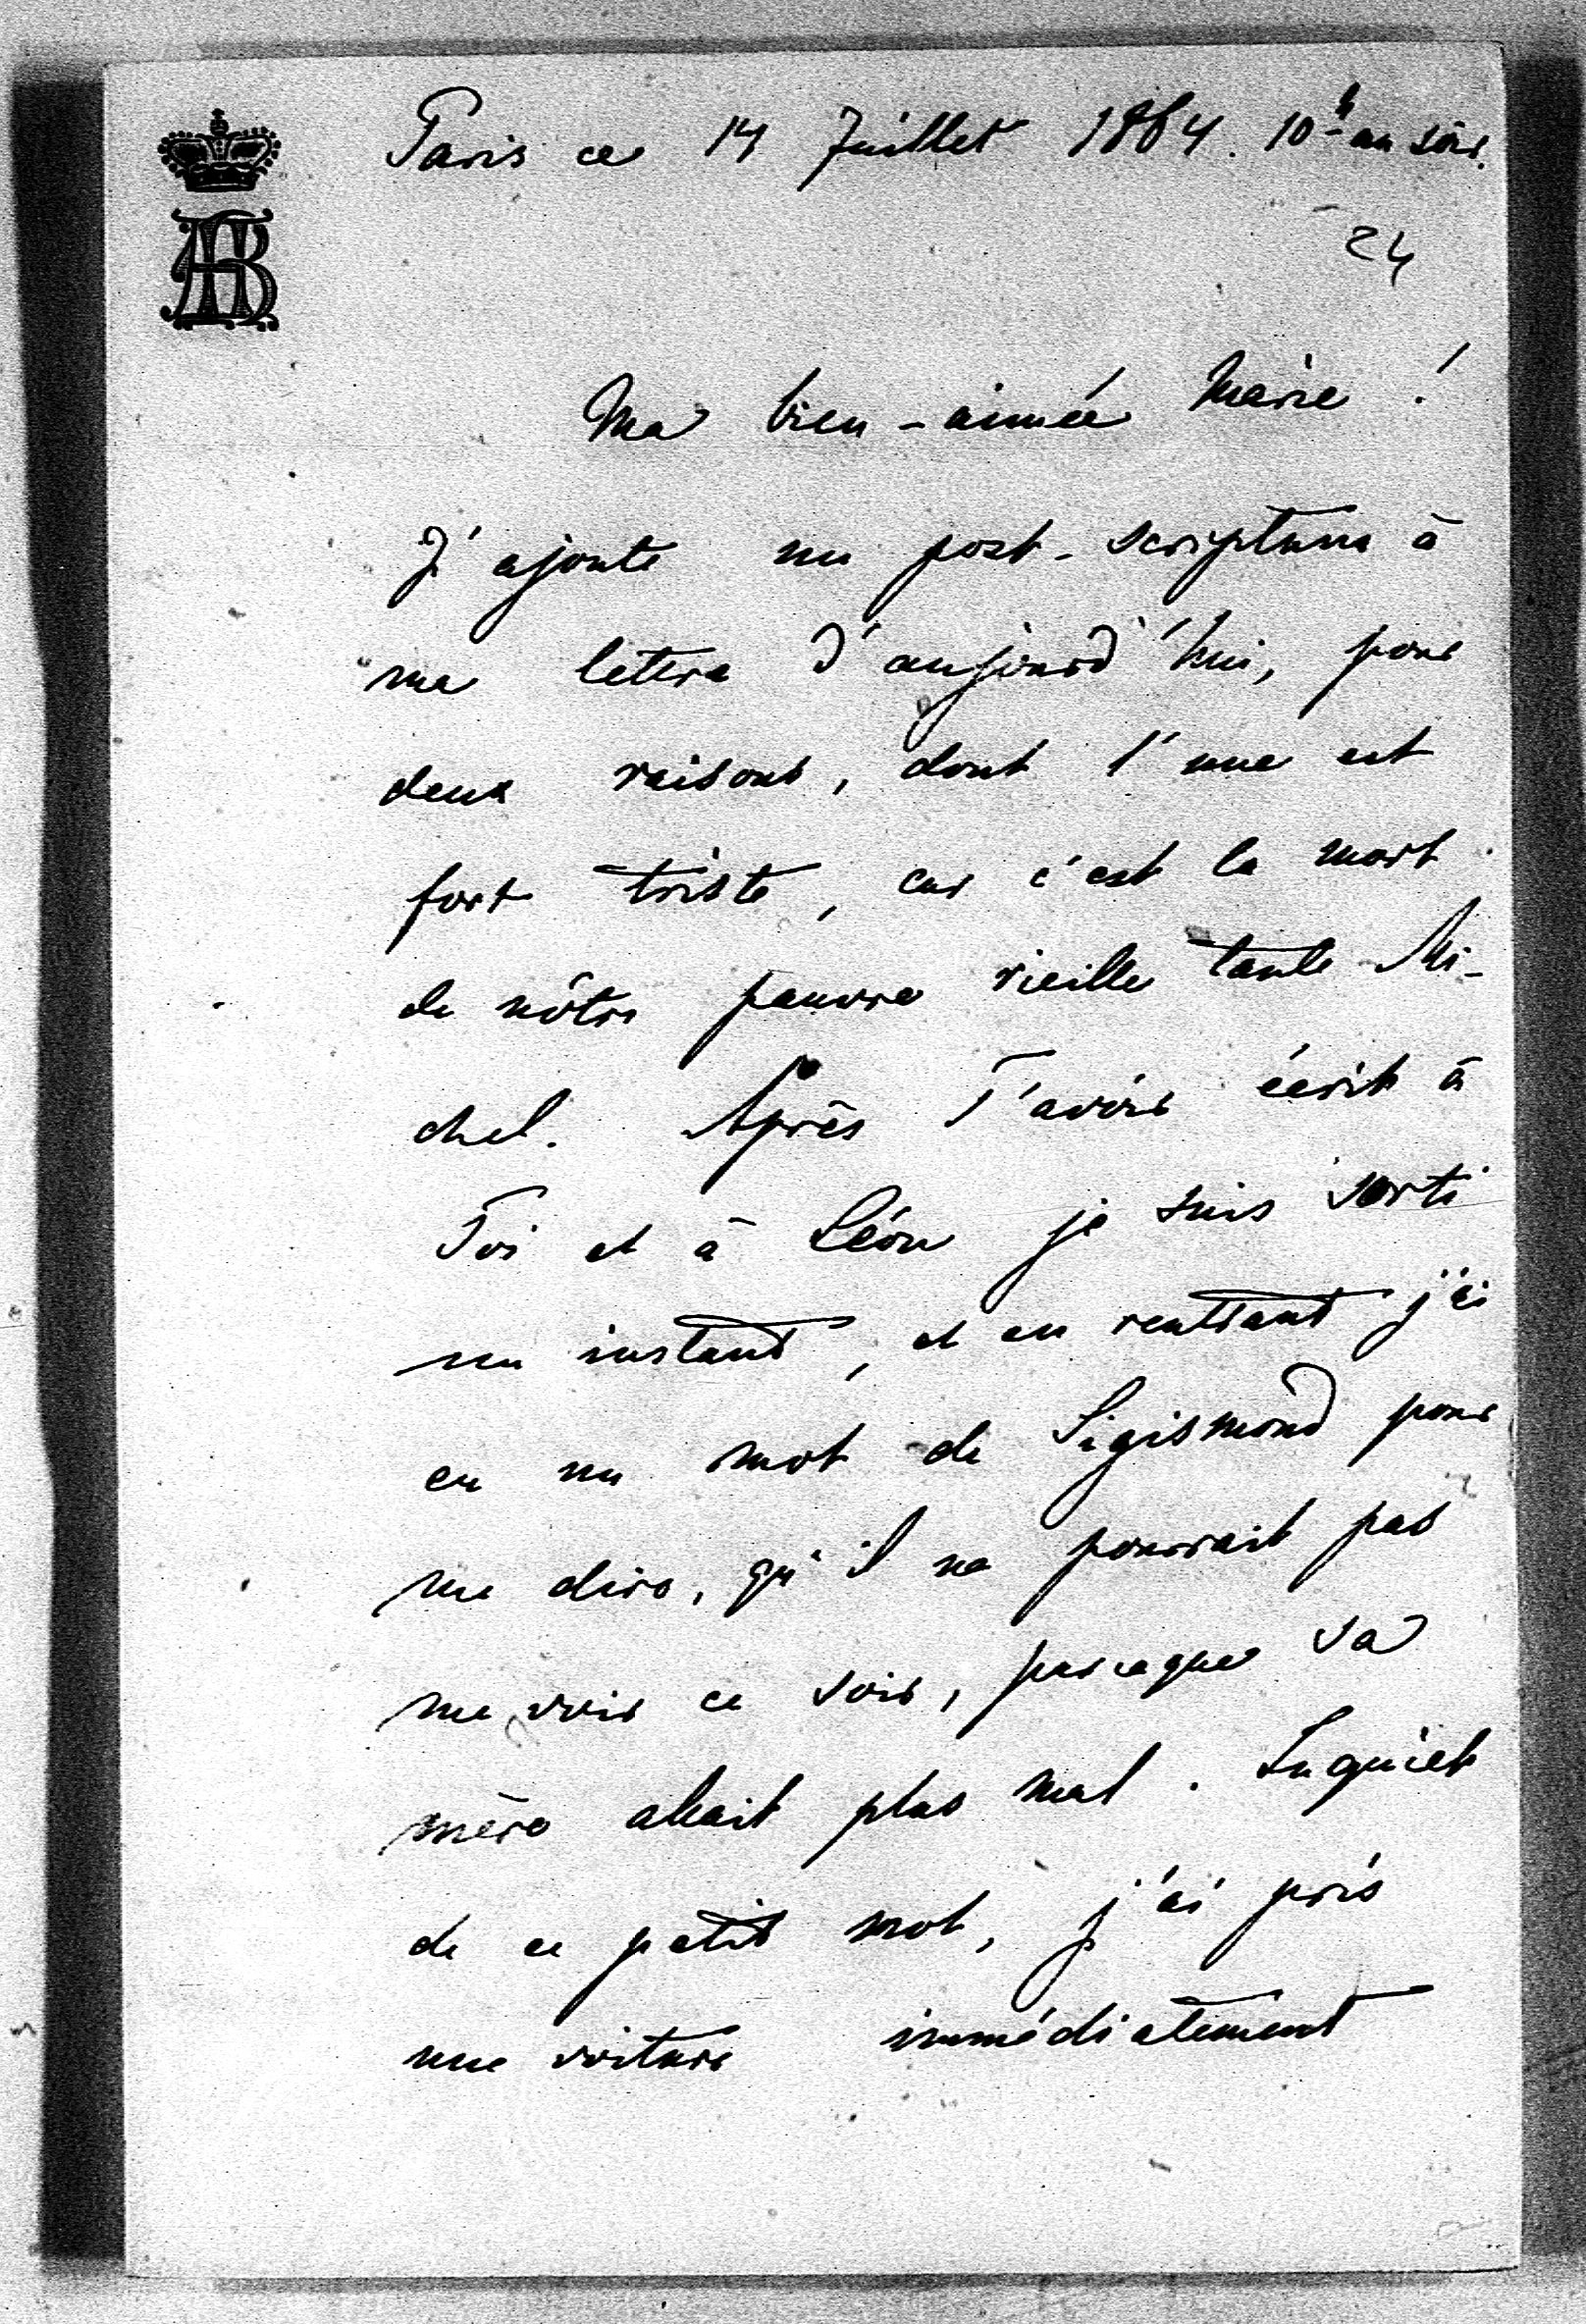 Paris ce 14 Juillet 1864. 10 h au soir.
24
Ma bien-aimée Marie !
J'ajoute un post-scriptum à
ma lettre d'aujourd'hui, pour
deux raisons, dont l'une est
fort triste, car c'est la mort
de nôtre pauvre vieille tante Mi-
chel. Après T'avoir écrit à
Toi et à Léon je suis sorti
un instant, et en rentrant j'ai
eu un mot de Sigismond pour
me dire, qu'il ne pourrait pas
me voir ce soir, parceque sa
mère allait plus mal. Inquiet
de ce petit mot, j'ai pris
une voiture immédiatement